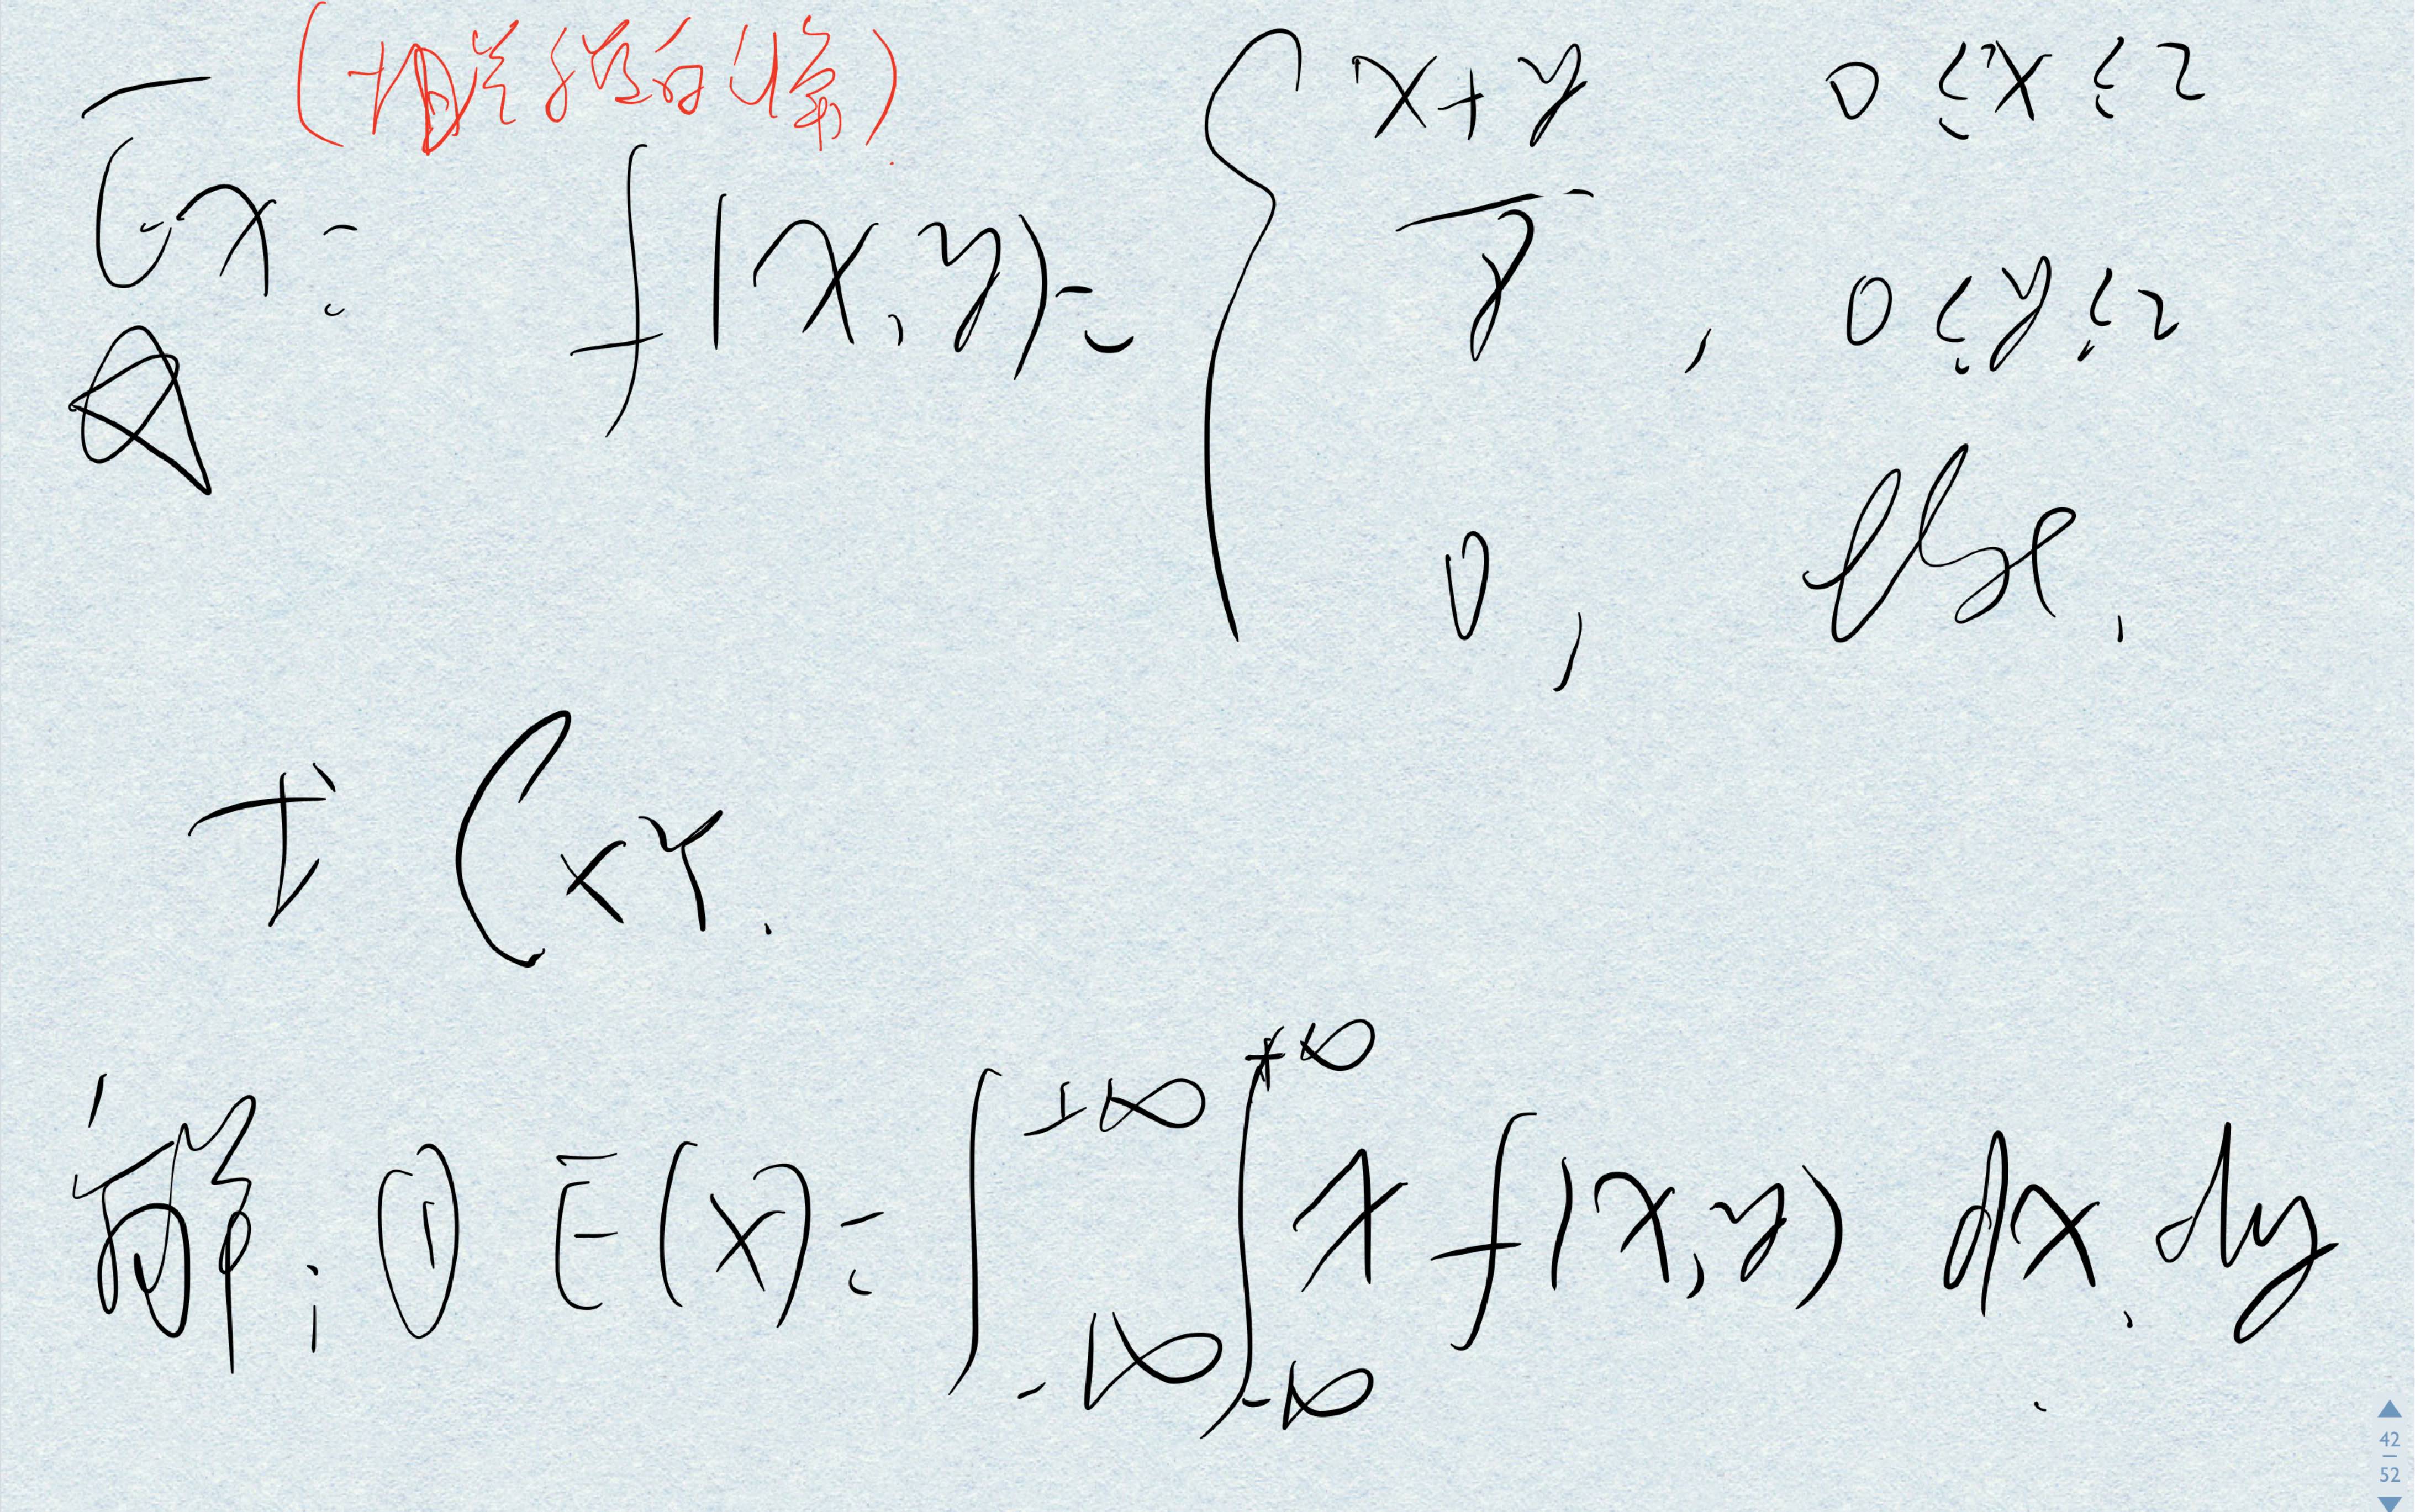 Ex: f(x,y)= { (x+y)/8, 0≤x≤2
0≤y≤2
0, else.
求 ρXY.
解: ① E(x)= ∫_{-∞}^{+∞} ∫_{-∞}^{+∞} x f(x,y) dx.dy
42
52